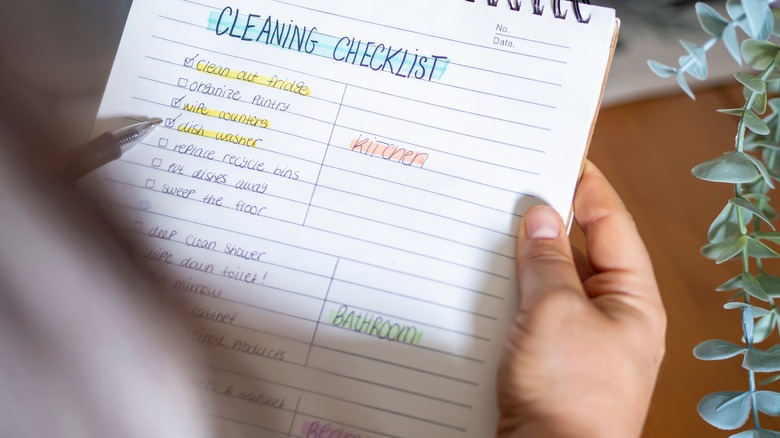 No.
Date.
CLEANING CHECKLIST
clean out fridge
organize pantry
wipe counters
dish washer
replace recycle bins
put dishes away
sweep the floor
Kitchen
deep clean shower
wipe down toilet!
mirrow
cabinet
products
BAThROOM
& blanket